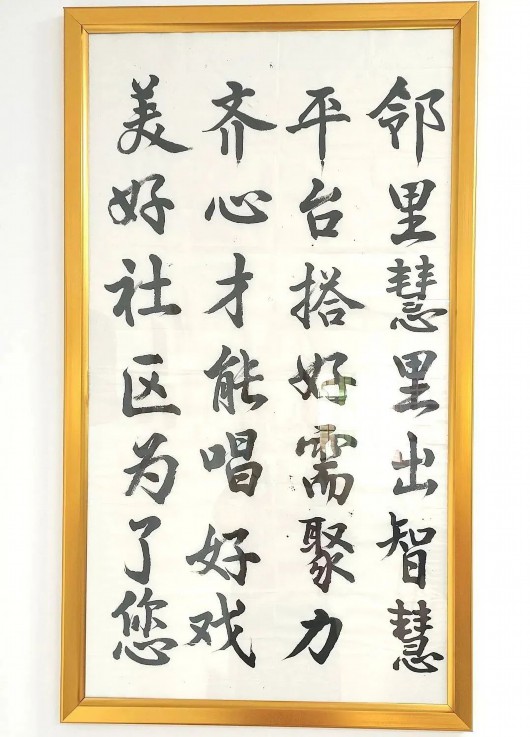 邻里慧里出智慧
平台搭好需聚力
齐心才能唱好戏
美好社区为了您